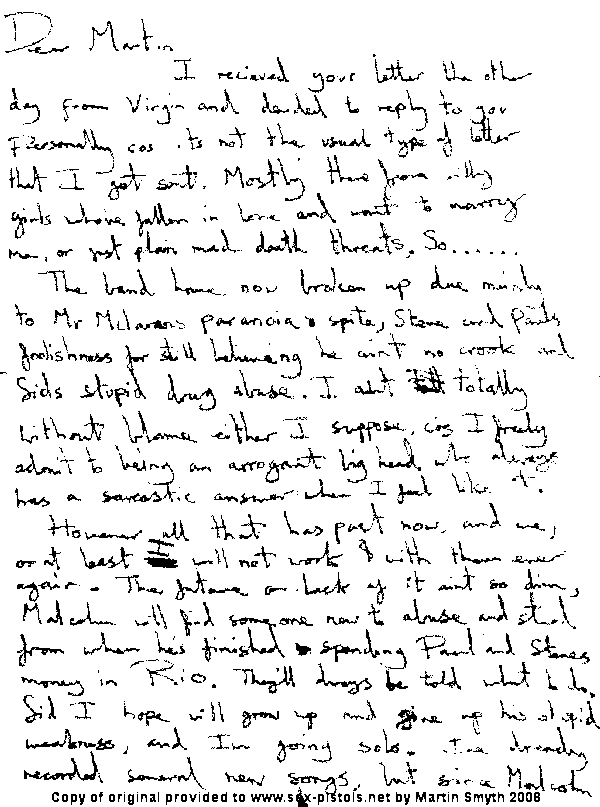 Dear Martin
I recieved your letter the other
day from Virgin and decided to reply to you
Personally cos its not the usual type of letter
that I get sent. Mostly there from silly
girls whove fallen in love and want to marry
me, or just plain mad death threats. So......
The band have now broken up due mainly
to Mr Mclarens paranoia & spite, Steve and Pauls
foolishness for still believeing he ain't no crook and
Sids stupid drug abuse. I aint totally
without blame either I suppose, cos I freely
admit to being an arrogant big head who always
has a sarcastic answer when I feel like it.
However all that has past now, and we,
or at least I will not work with them ever
again. The future or lack of it aint so dim,
Malcolm will find someone new to abuse and steal
from when he's finished spending Paul and Steves
money in Rio. They'll always be told what to do.
Sid I hope will grow up and give up his stupid
weakness, and I'm going solo. I've already
recorded several new songs, but since Malcolm
Copy of original provided to www.sex-pistols.net by Martin Smyth 2008